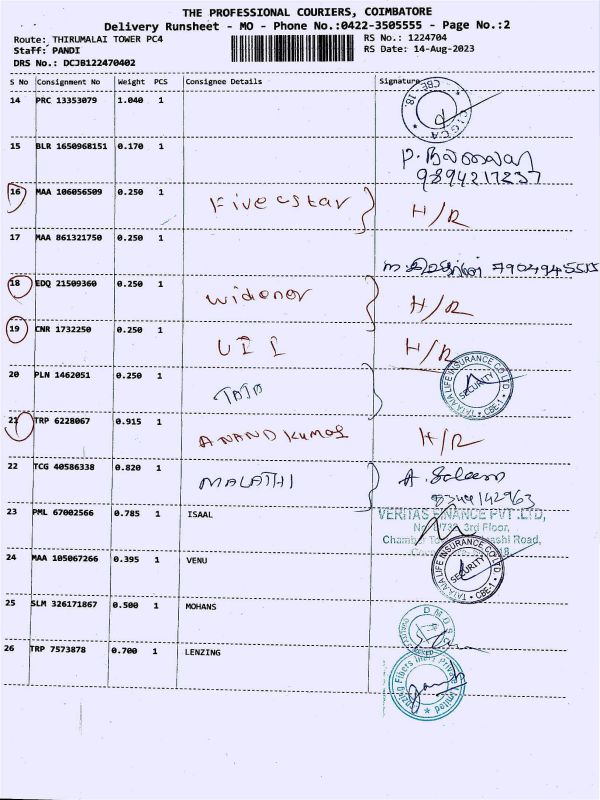 THE PROFESSIONAL COURIERS, COIMBATORE
Delivery Runsheet - MO - Phone No.:0422-3505555 - Page No.:2
Route: THIRUMALAI TOWER PC4 RS No.: 1224704
Staff: PANDI RS Date: 14-Aug-2023
DRS No.: DCJB122470402
S No Consignment No Weight PCS Consignee Details Signature
14 PRC 13353079 1.040 1
CBE 18.
15 BLR 1650968151 0.170 1 P.
9894217237
16 MAA 106056509 0.250 1 Five star H/R
17 MAA 861321750 0.250 1
7904945515
18 EDQ 21509360 0.250 1 widener H/R
19 CNR 1732250 0.250 1 UII H/R
20 PLN 1462051 0.250 1 TATA
TATA AIA LIFE INSURANCE CO LTD. CBE-1 SECURITY
21 TRP 6228067 0.915 1 ANAND KUMAR H/R
22 TCG 40586338 0.820 1 MALATHI A. Saleem
9344142963
23 PML 67002566 0.785 1 ISAAL VERITAS FINANCE PVT .LTD,
3rd Floor,
Road,
24 MAA 105067266 0.395 1 VENU
TATA AIA LIFE INSURANCE CO LTD. CBE-1 SECURITY
25 SLM 326171867 0.500 1 MOHANS
26 TRP 7573878 0.700 1 LENZING
Fibers Private Limited